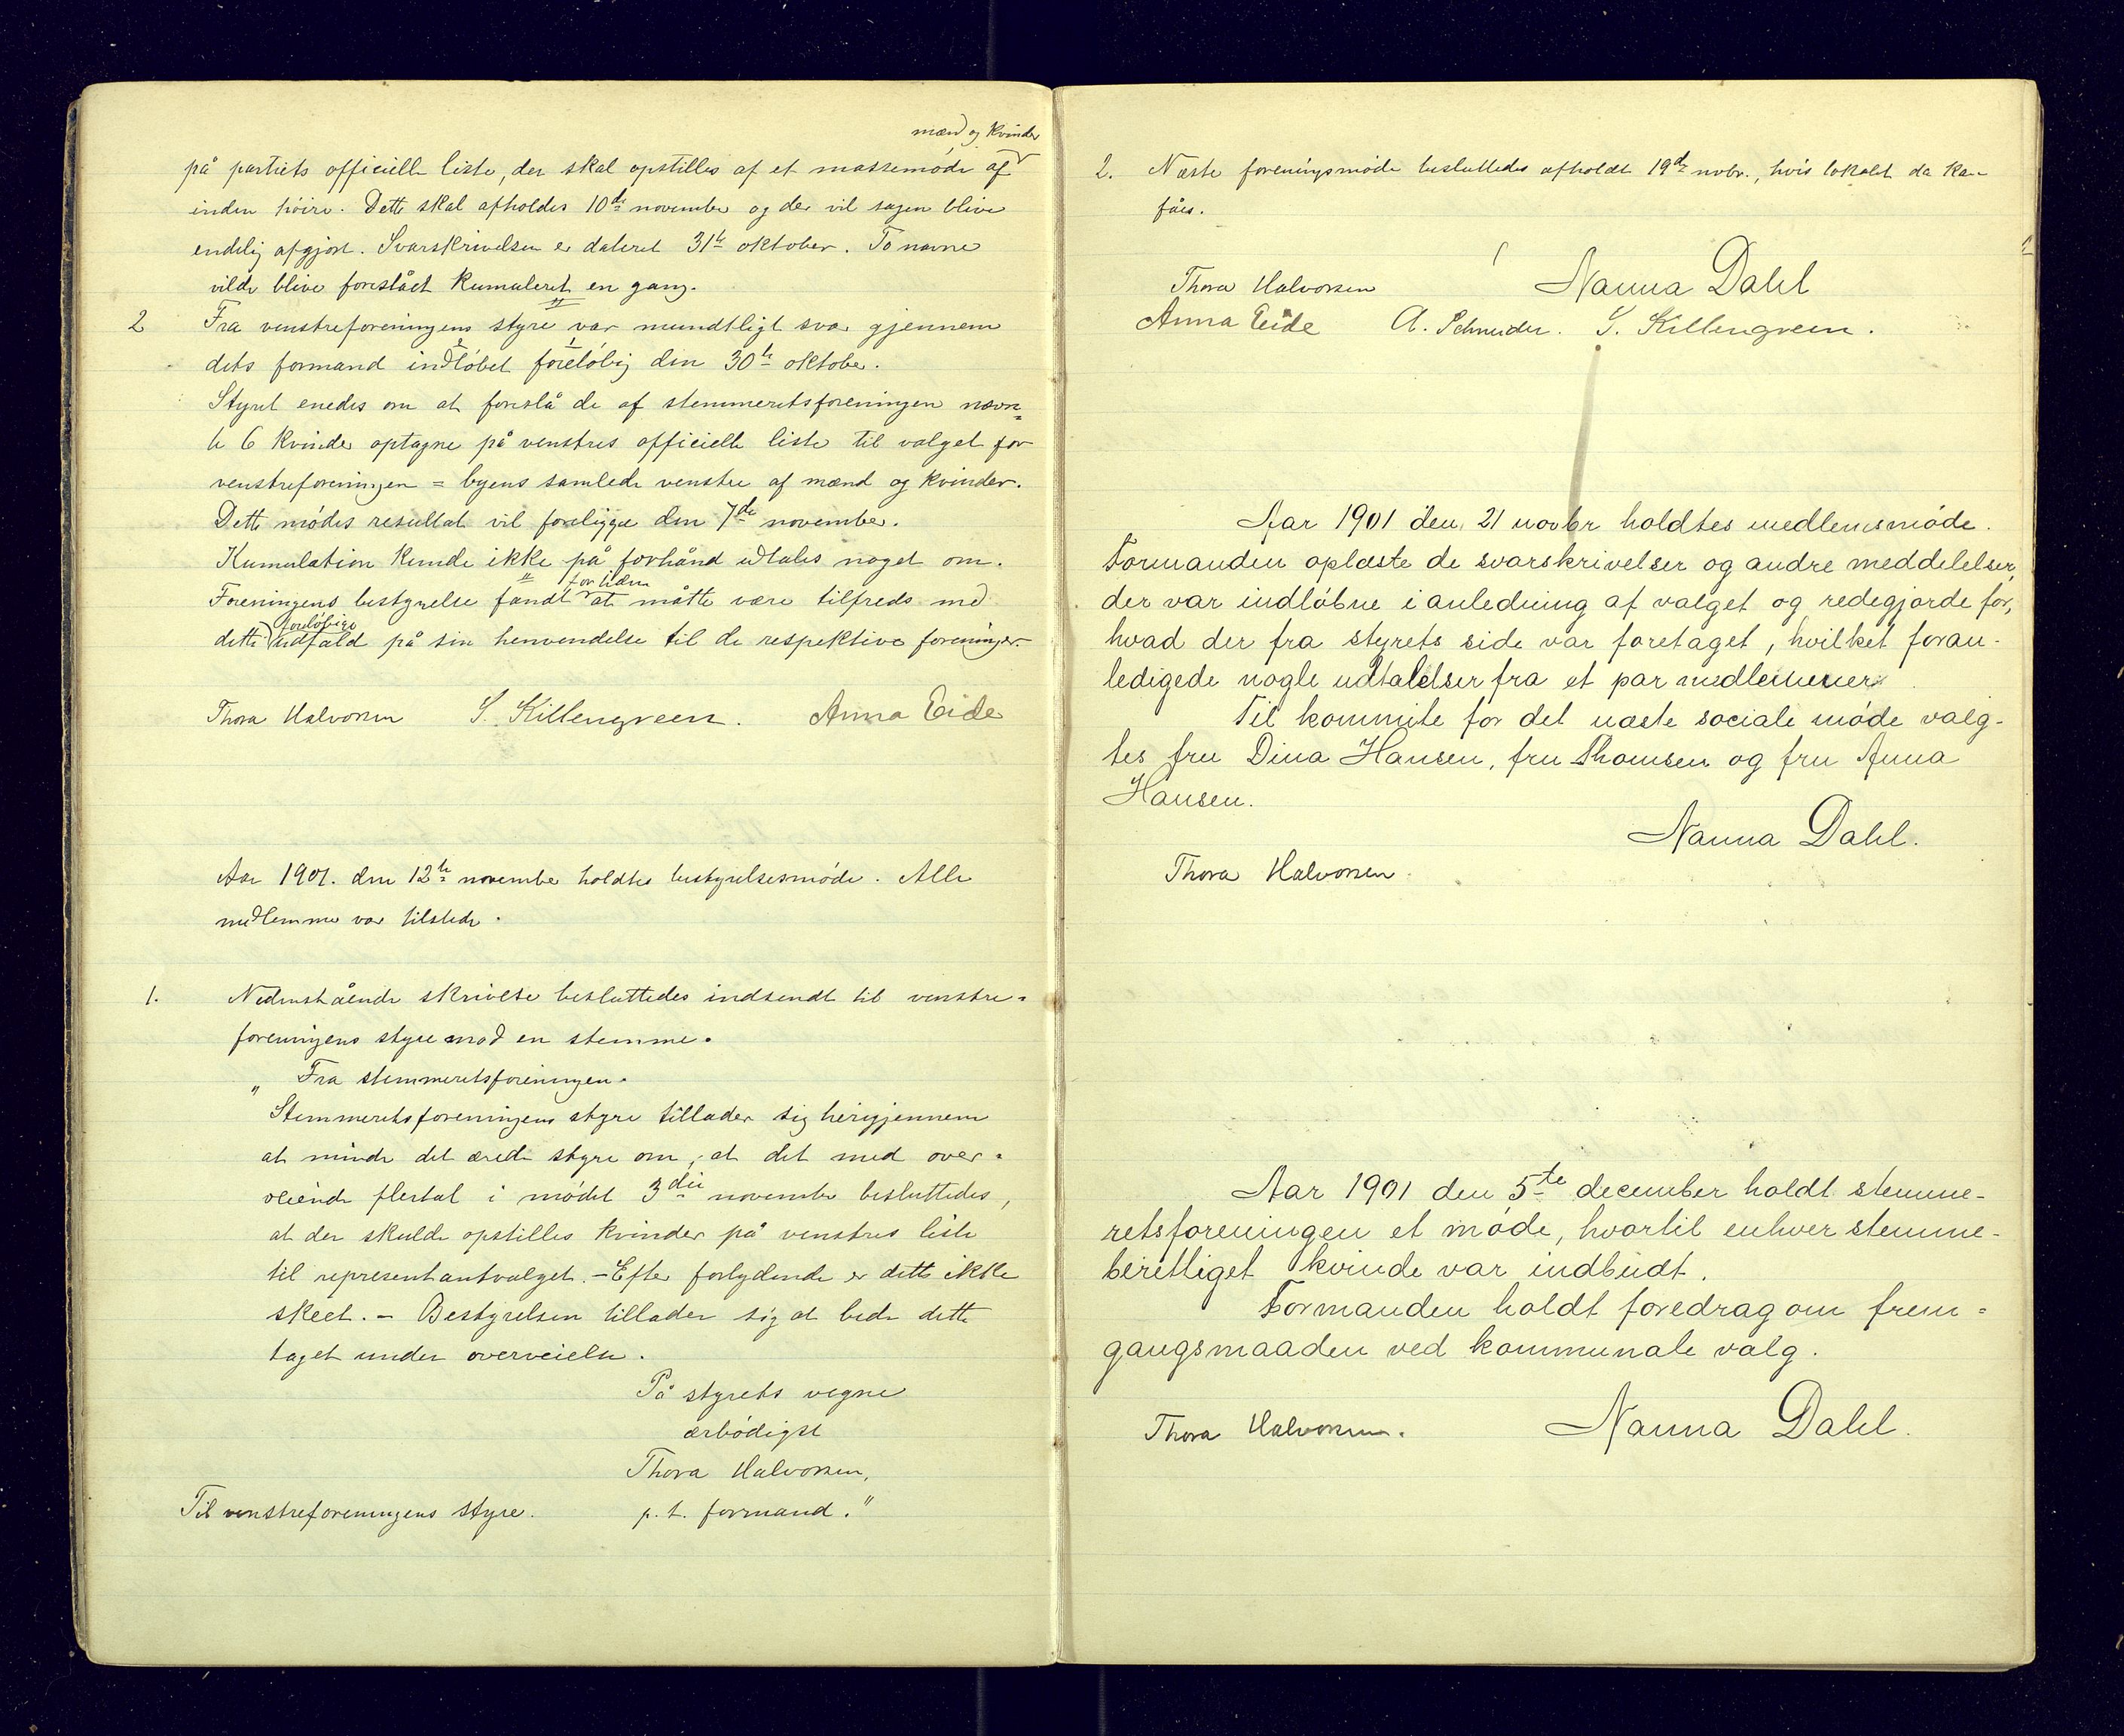 mænd og kvinder
på partiets officielle liste, der skal opstilles af et massemøde af
inden høire. Dette skal afholdes 10de november og der vil sagen blive
endelig afgjort. Svarskrivelsen er dateret 31te oktober. To navne
vilde blive foreslået kumuleret en gang.
2 Fra venstreforeningens styre var mundtligt svar gjennem
dets formand indløbet foreløbig den 30te oktober.
Styret enedes om at foreslå de af stemmeretsforeningen nævn=
te 6 kvinder optagne på venstres officielle liste til valget for
venstreforeningen = byens samlede venstre af mænd og kvinder.
Dette mødes resultat vil foreligge den 7de november.
Kumulation kunde ikke på forhånd udtales noget om.
for tiden
Foreningens bestyrelse fandt at måtte være tilfreds med
foreløbige
dette udfald på sin henvendelse til de respektive foreninger.
Thora Halvorsen S. Killengreen. Anna Eide
Aar 1901. den 12te november holdtes bestyrelsesmøde. Alle
medlemmer var tilstede.
1. Nedenstående skrivelse besluttedes indsendt til venstre=
foreningens styre mod en stemme.
„ Fra stemmeretsforeningen.
Stemmeretsforeningens styre tillader sig herigjennem
at minde det ærede styre om, at det med over=
veiende flertal i mødet 3die november besluttedes,
at der skulde opstilles kvinder på venstres liste
til representantvalget. – Efter forlydende er dette ikke
skeet. – Bestyrelsen tillader sig at bede dette
taget under overveielse.
På styrets vegne
ærbødigst
Thora Halvorsen,
Til venstreforeningens styre. p. t. formand."
2. Næste foreningsmøde besluttedes afholdt 19de novbr., hvis lokalet da kan
fåes.
Thora Halvorsen Nanna Dahl
Anna Eide A. Schneider. S. Killengreen.
Aar 1901 den 21 novbr holdtes medlemsmøde.
Formanden oplæste de svarskrivelser og andre meddelelser,
der var indløbne i anledning af valget og redegjorde for,
hvad der fra styrets side var foretaget, hvilket foran-
ledigede nogle udtalelser fra et par medlemmer.
Til kommite for det næste sociale møde valg-
tes fru Dina Hansen, fru Thomsen og fru Anna
Hansen.
Nanna Dahl.
Thora Halvorsen.
Aar 1901 den 5te december holdt stemme-
retsforeningen et møde, hvortil enhver stemme-
berettiget kvinde var indbudt.
Formanden holdt foredrag om frem=
gangsmaaden ved kommunale valg.
Thora Halvorsen. Nanna Dahl.